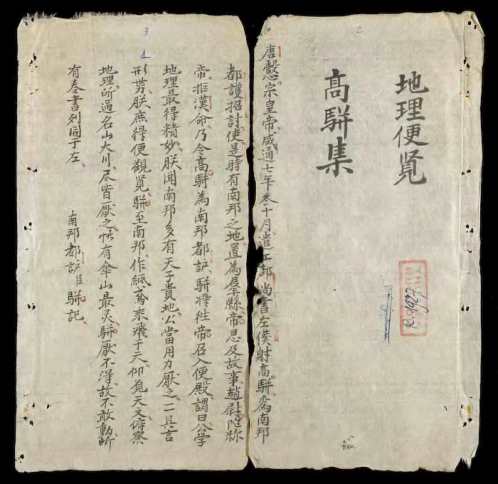 地理便覧
高駢集
唐懿宗皇帝咸通七年冬十月遣工部尚書左僕射高駢為南邦
都護招討使是時有南邦之地置為縣帝思及故事趙尉陀称
帝推漢命乃令高駢為南邦都護駢將往帝召入便殿謂曰公学
地理最得精妙朕聞南邦多有天子貴地公當用力厭之一一具言
形势朕庶得便觀覧駢至南邦作紙鳶乘飛于天仰覓天文俯察
地理所過名山大川尽皆厭之惟有傘山最灵駢厭不得故不敢動斬
有奏書列同于左
南邦都護駢記